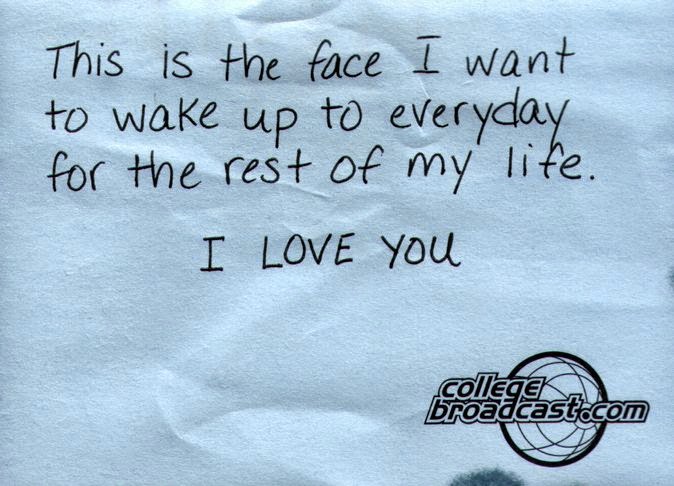 This is the face I want
to wake up to everyday
for the rest of my life.
I LOVE YOU
college
broadcast.com